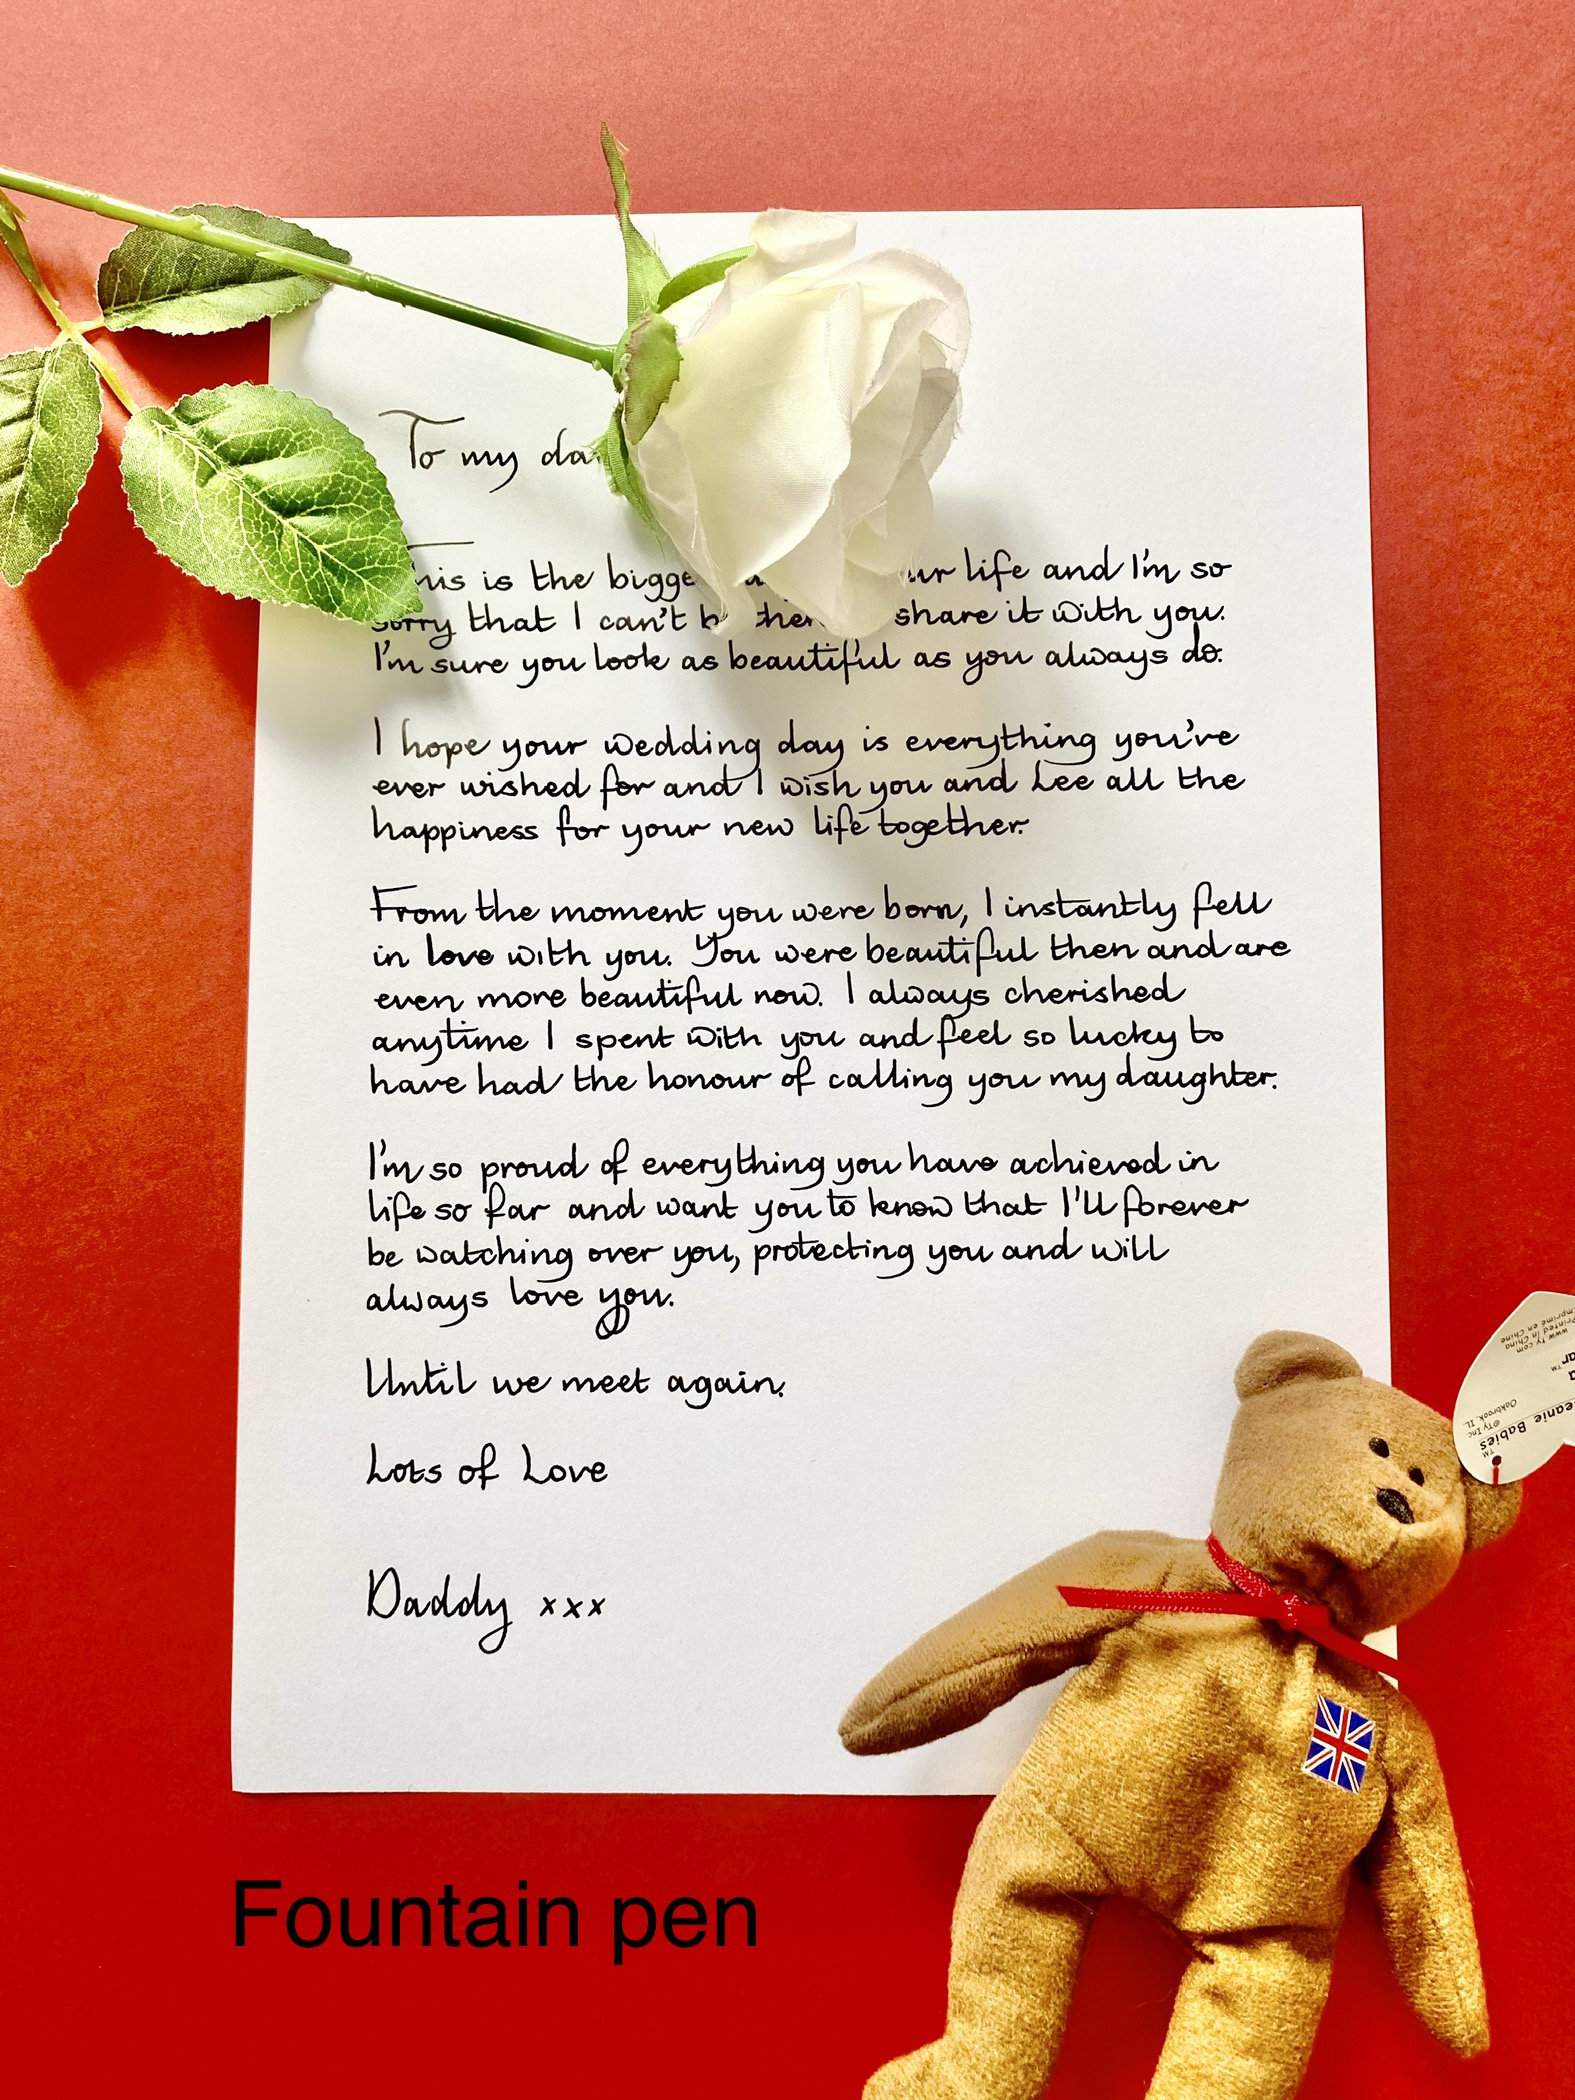 To my
is the life and I'm so
sorry that I can't share it with you.
I'm sure you look as beautiful as you always do.
I hope your wedding day is everything you've
ever wished for and I wish you and Lee all the
happiness for your new life together.
From the moment you were born, I instantly fell
in love with you. You were beautiful then and are
even more beautiful now. I always cherished
anytime I spent with you and feel so lucky to
have had the honour of calling you my daughter.
I'm so proud of everything you have achieved in
life so far and want you to know that I'll forever
be watching over you, protecting you and will
always love you.
Until we meet again.
Lots of Love
Daddy xxx
Fountain pen
Beanie Babies™
©Ty Inc.
Oakbrook, IL
www.ty.com
Printed in China